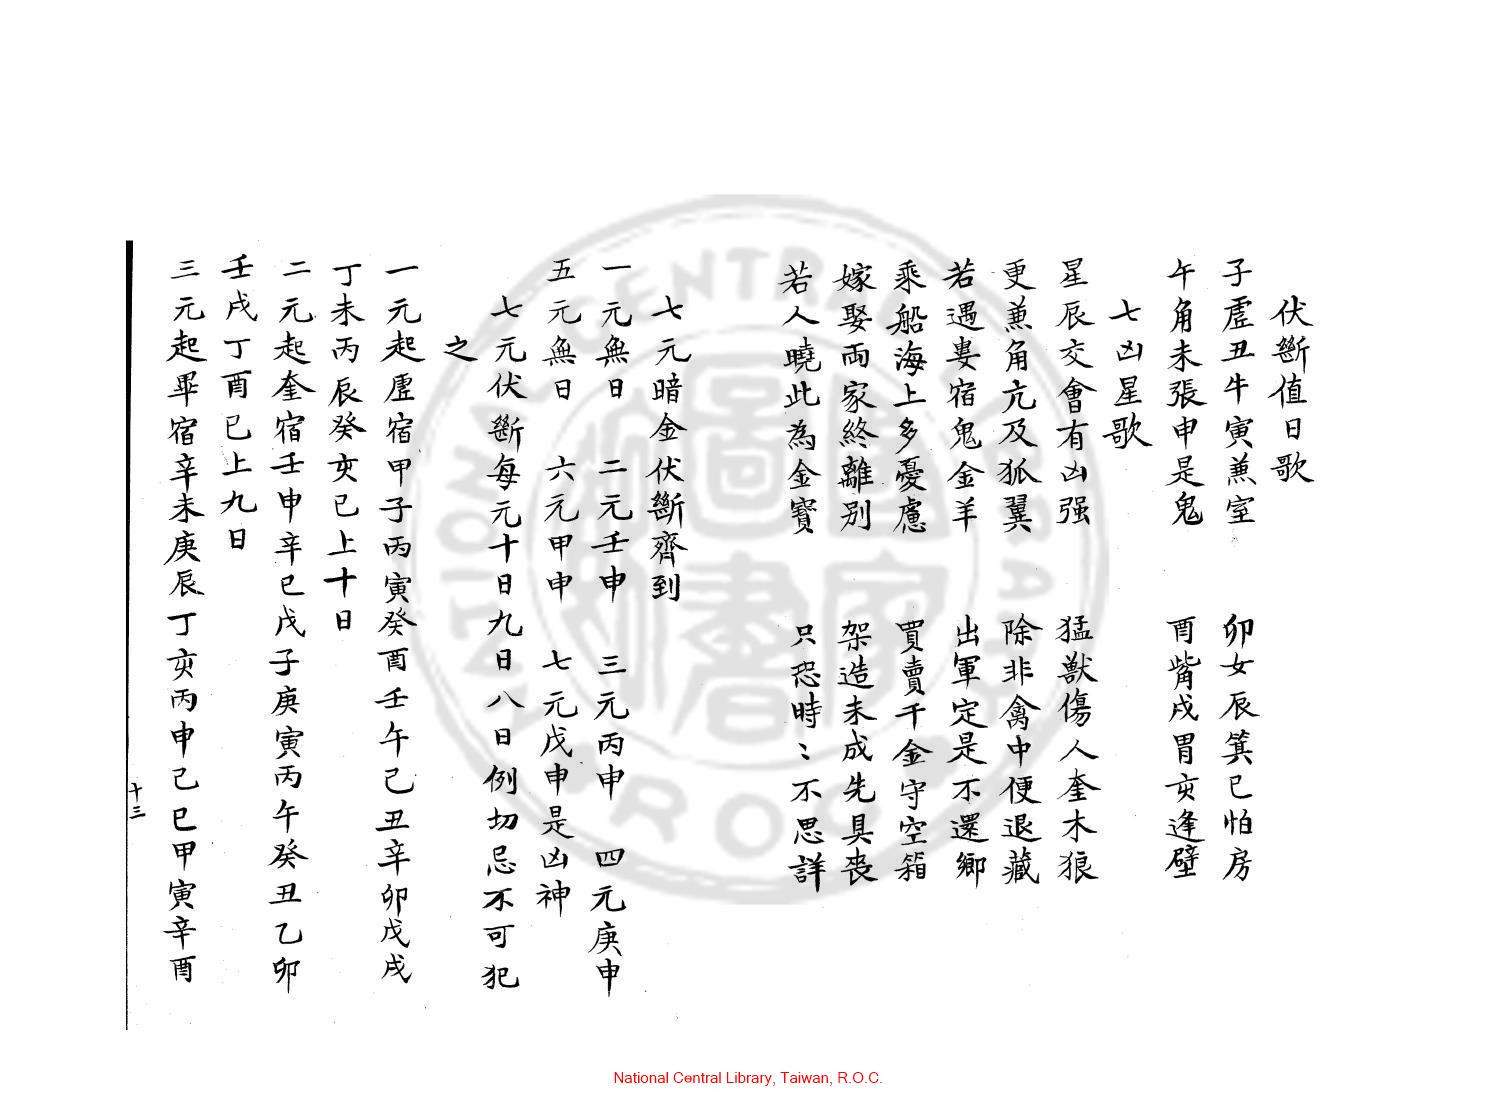 伏斷值日歌
子虛丑牛寅兼室　卯女辰箕巳怕房
午角未張申是鬼　酉觜戌胃亥逢壁
七凶星歌
星辰交會有凶强　猛獸傷人奎木狼
更兼角亢及狐翼　除非禽中便退藏
若遇婁宿鬼金羊　出軍定是不還鄉
乘船海上多憂慮　買賣千金守空箱
嫁娶両家終離別　架造未成先具喪
若人曉此為金寶　只恐時〻不思詳
七元暗金伏斷齊到
一元無日　二元壬申　三元丙申　四元庚申
五元無日　六元甲申　七元戊申是凶神
七元伏斷每元十日九日八日例切忌不可犯
之
一元起虛宿甲子丙寅癸酉壬午己丑辛卯戊戌
丁未丙辰癸亥巳上十日
二元起奎宿壬申辛巳戊子庚寅丙午癸丑乙卯
壬戌丁酉巳上九日
三元起畢宿辛未庚辰丁亥丙申己巳甲寅辛酉
十三
NATIONAL CENTRAL LIBRARY R.O.C. TAIWAN
國家圖書館
National Central Library, Taiwan, R.O.C.